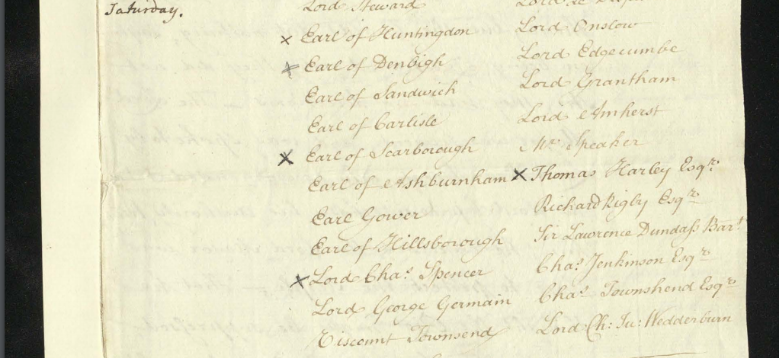 Saturday.
Lord Steward
× Earl of Huntingdon
× Earl of Denbigh
Earl of Sandwich
Earl of Carlisle
× Earl of Scarborough
Earl of Ashburnham
Earl Gower
Earl of Hillsborough
× Lord Chaˢ Spencer
Lord George Germain
Viscount Townsend
Lord
Lord Onslow
Lord Edgecumbe
Lord Grantham
Lord Amherst
Mʳ Speaker
× Thomas Harley Esqʳᵉ
Richard Rigby Esqʳᵉ
Sir Lawrence Dundass Barᵗ
Chaˢ Jenkinson Esqʳᵉ
Chaˢ Townshend Esqʳᵉ
Lord Ch: Ju: Wedderburn